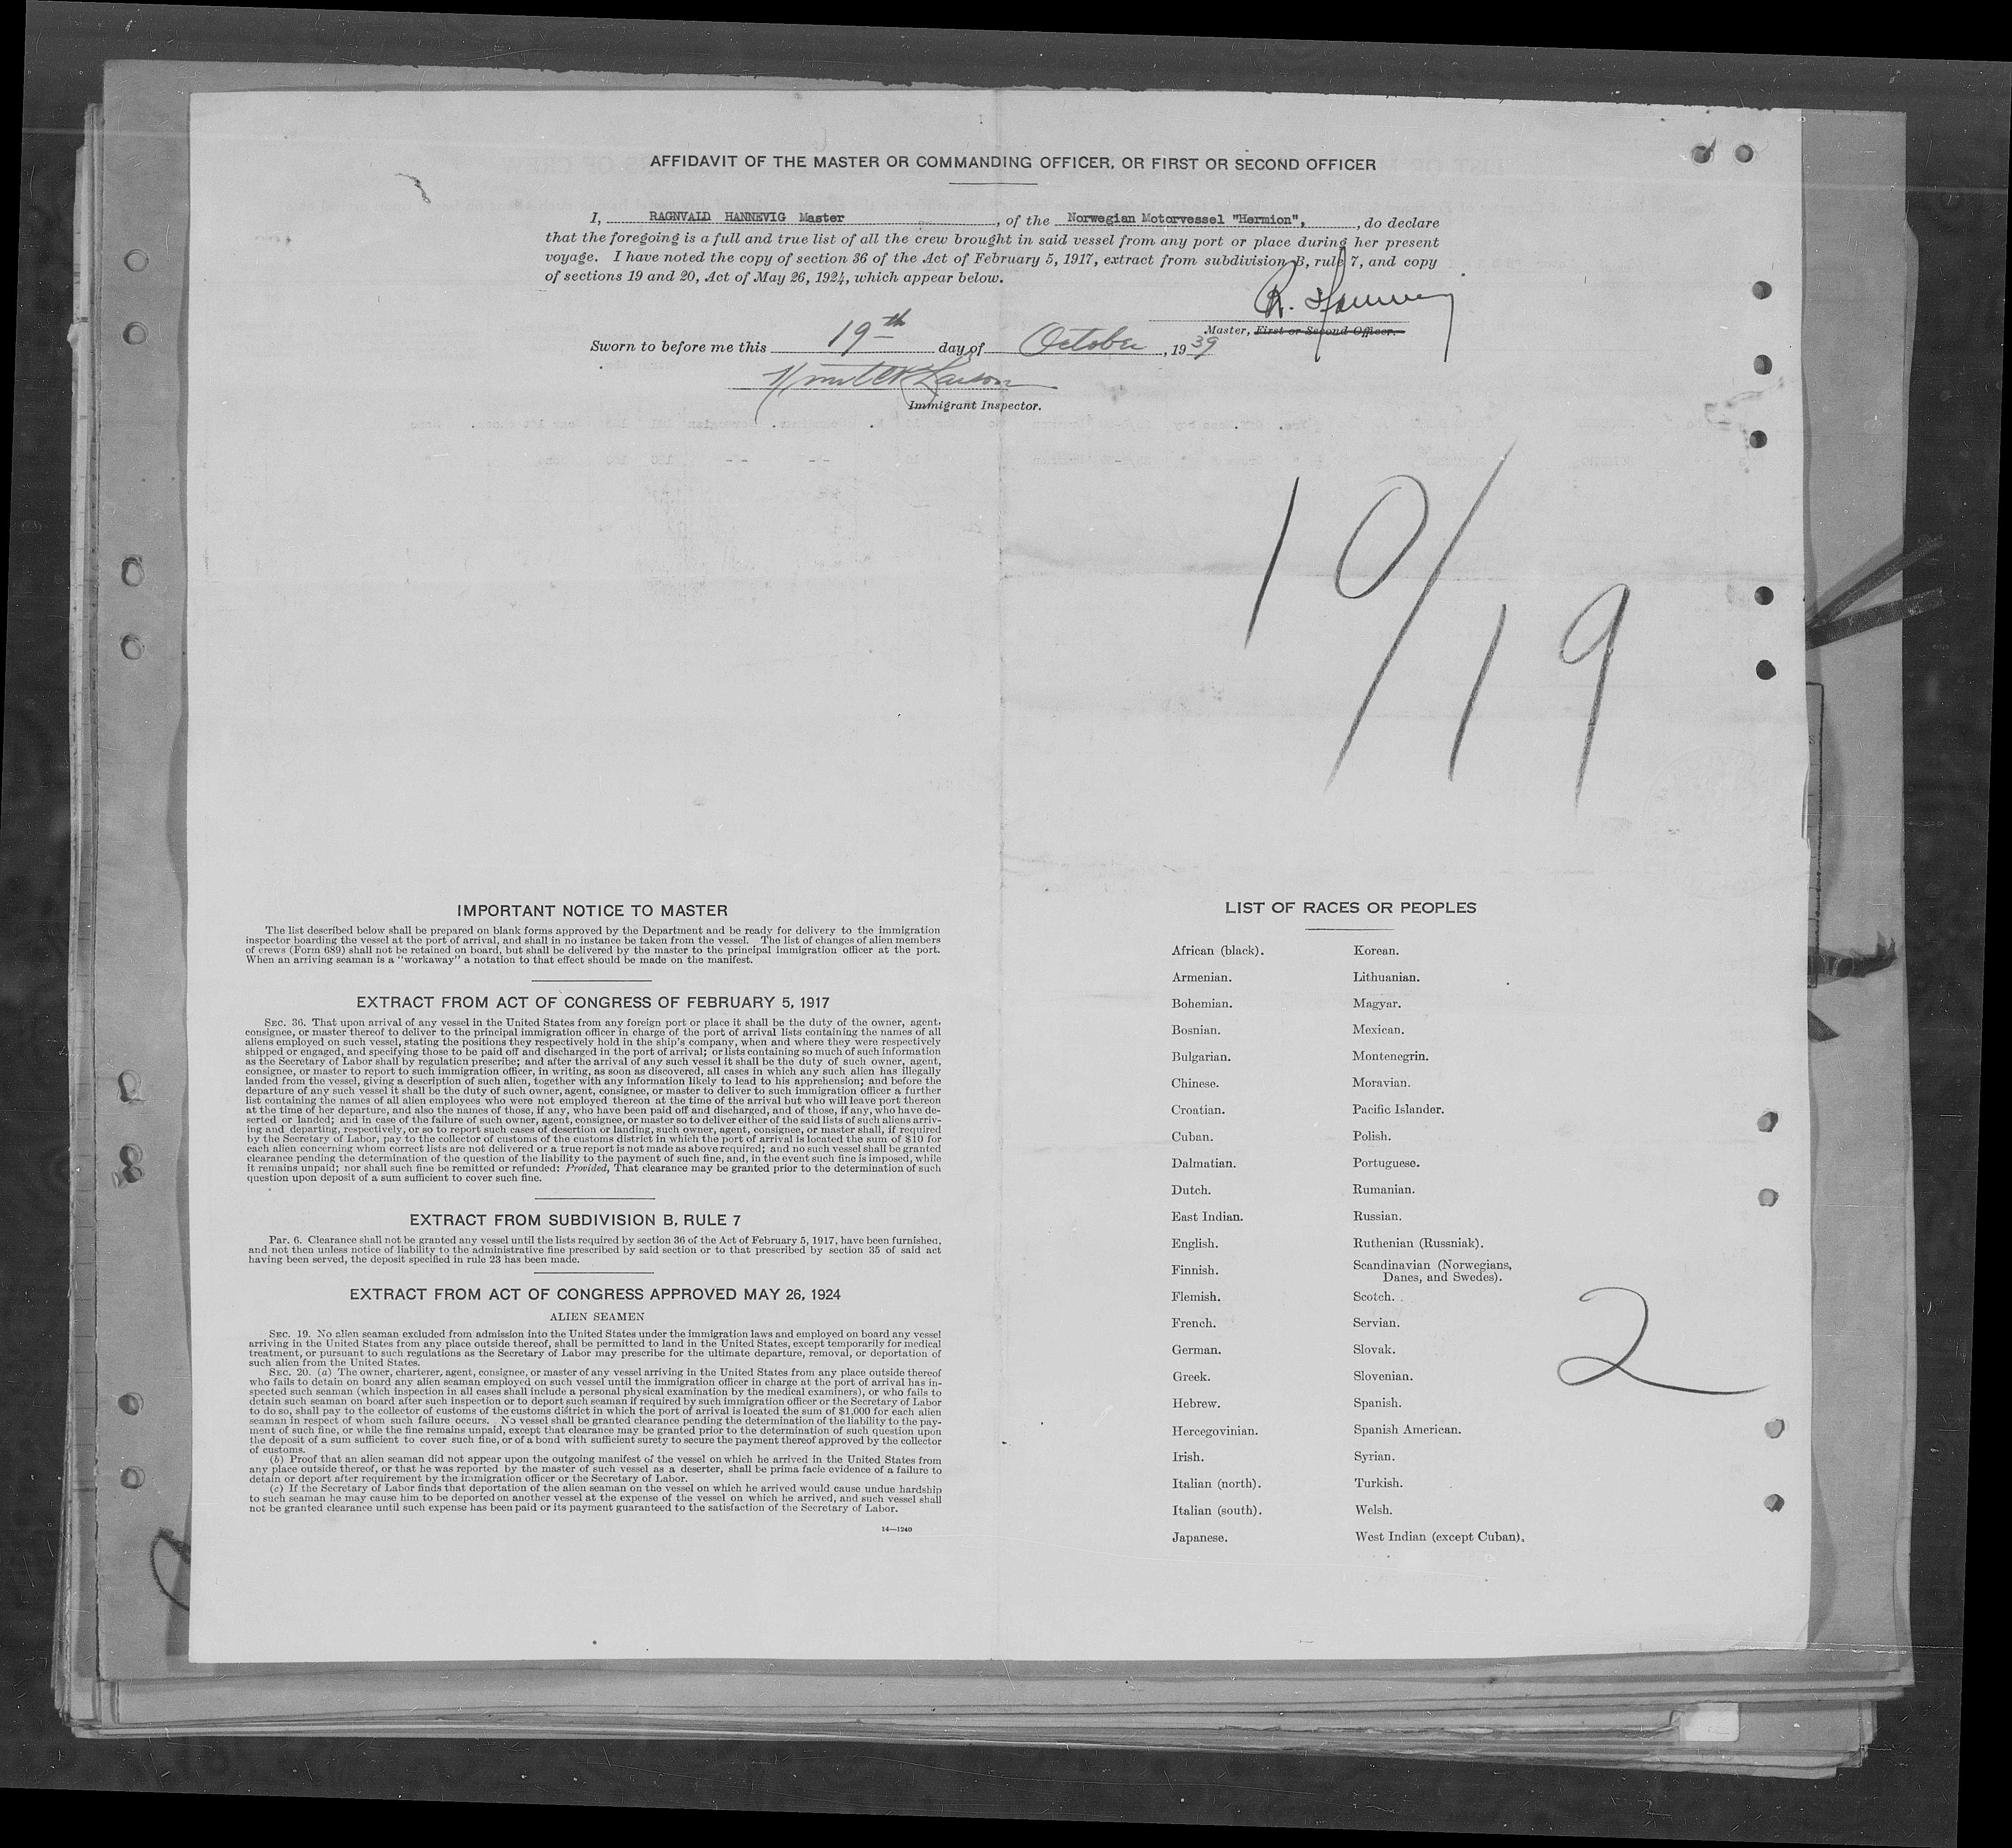 AFFIDAVIT OF THE MASTER OR COMMANDING OFFICER, OR FIRST OR SECOND OFFICER
I, RAGNVALD HANNEVIG Master, of the Norwegian Motorvessel "Hermion", , do declare
that the foregoing is a full and true list of all the crew brought in said vessel from any port or place during her present
voyage. I have noted the copy of section 36 of the Act of February 5, 1917, extract from subdivision B, rule 7, and copy
of sections 19 and 20, Act of May 26, 1924, which appear below.
R. Hannevig
Master, First or Second Officer.
Sworn to before me this 19th day of October, 1939
Larson
Immigrant Inspector.
10/19
IMPORTANT NOTICE TO MASTER
The list described below shall be prepared on blank forms approved by the Department and be ready for delivery to the immigration
inspector boarding the vessel at the port of arrival, and shall in no instance be taken from the vessel. The list of changes of alien members
of crews (Form 689) shall not be retained on board, but shall be delivered by the master to the principal immigration officer at the port.
When an arriving seaman is a "workaway" a notation to that effect should be made on the manifest.
EXTRACT FROM ACT OF CONGRESS OF FEBRUARY 5, 1917
SEC. 36. That upon arrival of any vessel in the United States from any foreign port or place it shall be the duty of the owner, agent,
consignee, or master thereof to deliver to the principal immigration officer in charge of the port of arrival lists containing the names of all
aliens employed on such vessel, stating the positions they respectively hold in the ship's company, when and where they were respectively
shipped or engaged, and specifying those to be paid off and discharged in the port of arrival; or lists containing so much of such information
as the Secretary of Labor shall by regulation prescribe; and after the arrival of any such vessel it shall be the duty of such owner, agent,
consignee, or master to report to such immigration officer, in writing, as soon as discovered, all cases in which any such alien has illegally
landed from the vessel, giving a description of such alien, together with any information likely to lead to his apprehension; and before the
departure of any such vessel it shall be the duty of such owner, agent, consignee, or master to deliver to such immigration officer a further
list containing the names of all alien employees who were not employed thereon at the time of the arrival but who will leave port thereon
at the time of her departure, and also the names of those, if any, who have been paid off and discharged, and of those, if any, who have de-
serted or landed; and in case of the failure of such owner, agent, consignee, or master so to deliver either of the said lists of such aliens arriv-
ing and departing, respectively, or so to report such cases of desertion or landing, such owner, agent, consignee, or master shall, if required
by the Secretary of Labor, pay to the collector of customs of the customs district in which the port of arrival is located the sum of $10 for
each alien concerning whom correct lists are not delivered or a true report is not made as above required; and no such vessel shall be granted
clearance pending the determination of the question of the liability to the payment of such fine, and, in the event such fine is imposed, while
it remains unpaid; nor shall such fine be remitted or refunded: Provided, That clearance may be granted prior to the determination of such
question upon deposit of a sum sufficient to cover such fine.
EXTRACT FROM SUBDIVISION B, RULE 7
Par. 6. Clearance shall not be granted any vessel until the lists required by section 36 of the Act of February 5, 1917, have been furnished,
and not then unless notice of liability to the administrative fine prescribed by said section or to that prescribed by section 35 of said act
having been served, the deposit specified in rule 23 has been made.
EXTRACT FROM ACT OF CONGRESS APPROVED MAY 26, 1924
ALIEN SEAMEN
SEC. 19. No alien seaman excluded from admission into the United States under the immigration laws and employed on board any vessel
arriving in the United States from any place outside thereof, shall be permitted to land in the United States, except temporarily for medical
treatment, or pursuant to such regulations as the Secretary of Labor may prescribe for the ultimate departure, removal, or deportation of
such alien from the United States.
SEC. 20. (a) The owner, charterer, agent, consignee, or master of any vessel arriving in the United States from any place outside thereof
who fails to detain on board any alien seaman employed on such vessel until the immigration officer in charge at the port of arrival has in-
spected such seaman (which inspection in all cases shall include a personal physical examination by the medical examiners), or who fails to
detain such seaman on board after such inspection or to deport such seaman if required by such immigration officer or the Secretary of Labor
to do so, shall pay to the collector of customs of the customs district in which the port of arrival is located the sum of $1,000 for each alien
seaman in respect of whom such failure occurs. No vessel shall be granted clearance pending the determination of the liability to the pay-
ment of such fine, or while the fine remains unpaid, except that clearance may be granted prior to the determination of such question upon
the deposit of a sum sufficient to cover such fine, or of a bond with sufficient surety to secure the payment thereof approved by the collector
of customs.
(b) Proof that an alien seaman did not appear upon the outgoing manifest of the vessel on which he arrived in the United States from
any place outside thereof, or that he was reported by the master of such vessel as a deserter, shall be prima facie evidence of a failure to
detain or deport after requirement by the immigration officer or the Secretary of Labor.
(c) If the Secretary of Labor finds that deportation of the alien seaman on the vessel on which he arrived would cause undue hardship
to such seaman he may cause him to be deported on another vessel at the expense of the vessel on which he arrived, and such vessel shall
not be granted clearance until such expense has been paid or its payment guaranteed to the satisfaction of the Secretary of Labor.
14—1240
LIST OF RACES OR PEOPLES
African (black).
Armenian.
Bohemian.
Bosnian.
Bulgarian.
Chinese.
Croatian.
Cuban.
Dalmatian.
Dutch.
East Indian.
English.
Finnish.
Flemish.
French.
German.
Greek.
Hebrew.
Hercegovinian.
Irish.
Italian (north).
Italian (south).
Japanese.
Korean.
Lithuanian.
Magyar.
Mexican.
Montenegrin.
Moravian.
Pacific Islander.
Polish.
Portuguese.
Rumanian.
Russian.
Ruthenian (Russniak).
Scandinavian (Norwegians,
Danes, and Swedes).
Scotch.
Servian.
Slovak.
Slovenian.
Spanish.
Spanish American.
Syrian.
Turkish.
Welsh.
West Indian (except Cuban).
2